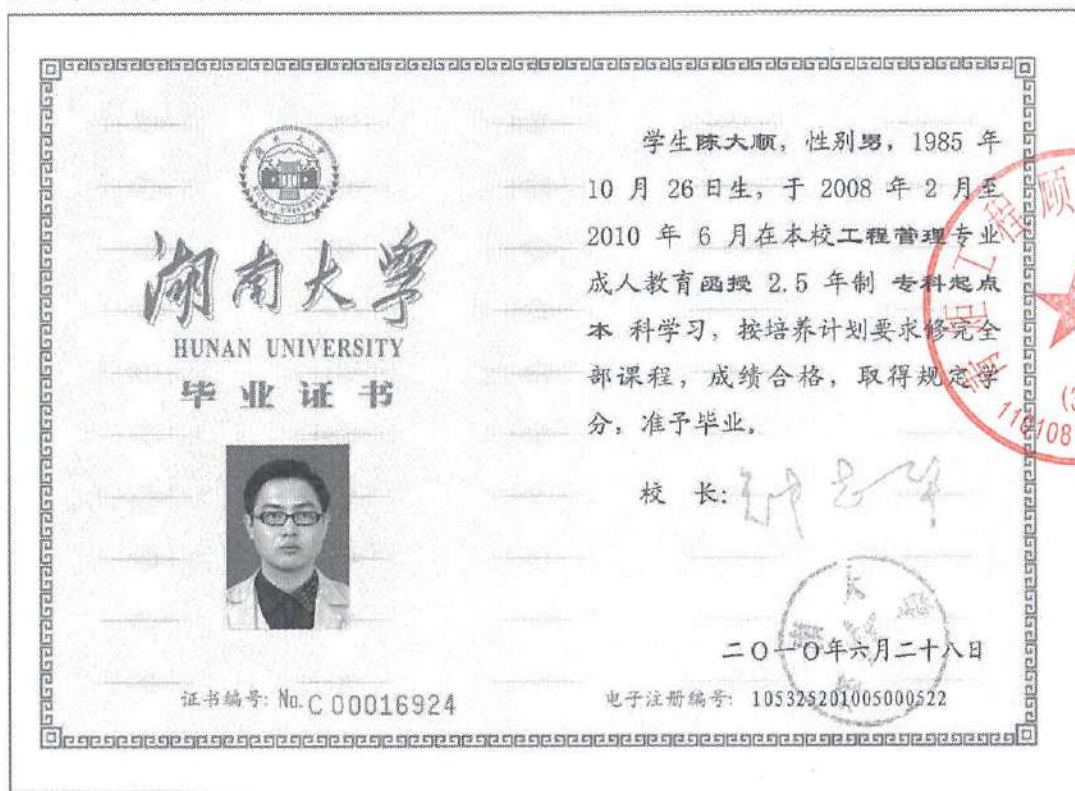 湖南大学
HUNAN UNIVERSITY
毕业证书
证书编号: No. C 00016924
学生陈大顺, 性别男, 1985 年
10 月 26 日生, 于 2008 年 2 月至
2010 年 6 月在本校工程管理专业
成人教育函授 2.5 年制 专科起点
本 科学习, 按培养计划要求修完全
部课程, 成绩合格, 取得规定学
分, 准予毕业。
校 长:
二〇一〇年六月二十八日
电子注册编号: 105325201005000522
工程顾
110108